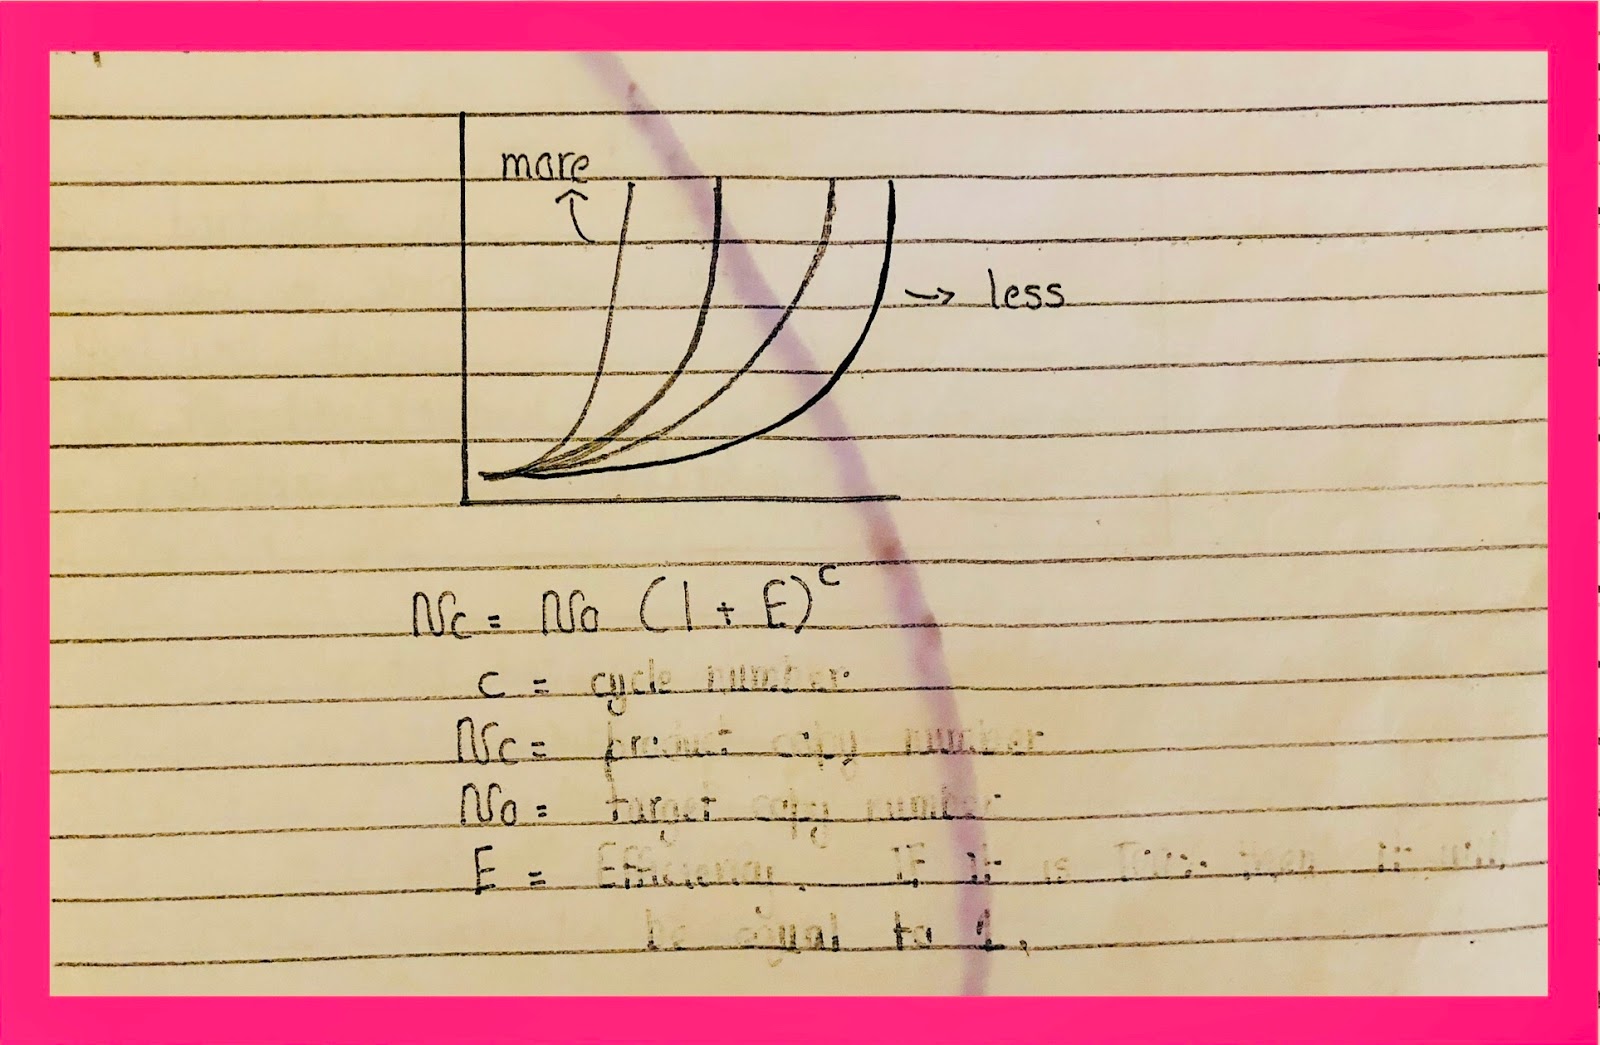 more
less
Nc = No (1 + E)^c
c = cycle number
Nc = product copy number
No = target copy number
E = Efficiency. If it is then it will
be equal to 1.